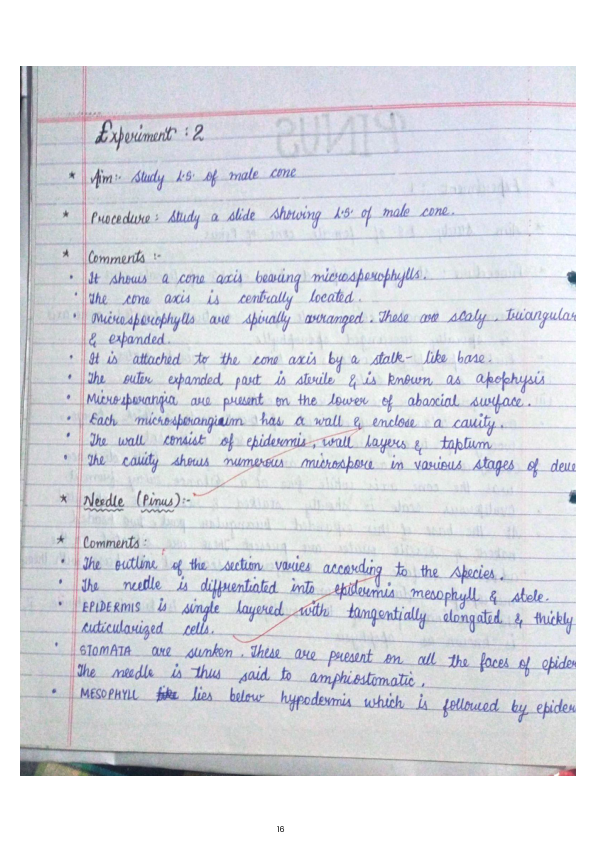 Experiment : 2
* Aim:- Study L.S. of male cone
* Procedure : Study a slide showing L.S. of male cone.
* Comments :-
• It shows a cone axis bearing microsporophylls.
• The cone axis is centrally located.
• Microsporophylls are spirally arranged. These are scaly, triangular
& expanded.
• It is attached to the cone axis by a stalk-like base.
• The outer expanded part is sterile & is known as apophysis
• Microsporangia are present on the lower of abaxial surface.
• Each microsporangium has a wall & enclose a cavity.
• The wall consist of epidermis, wall layers & taptum
• The cavity shows numerous microspore in various stages of deve
* Needle (Pinus):-
* Comments :
• The outline of the section varies according to the species.
• The needle is diffrentiated into epidermis mesophyll & stele.
• EPIDERMIS is single layered with tangentially elongated & thickly
cuticularized cells.
• STOMATA are sunken. These are present on all the faces of epider
The needle is thus said to amphiostomatic.
• MESOPHYLL lies below hypodermis which is followed by epider
16